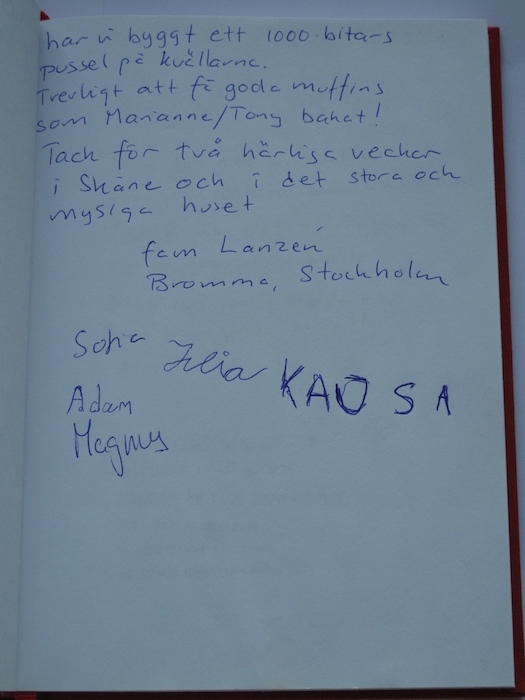 har vi byggt ett 1000-bitars
pussel på kvällarna.
Trevligt att få goda muffins
som Marianne/Tony bakat!
Tack för två härliga veckor
i Skåne och i det stora och
mysiga huset
fam Lanzén
Bromma, Stockholm
Sofia
Julia
KAO S A
Adam
Magnus